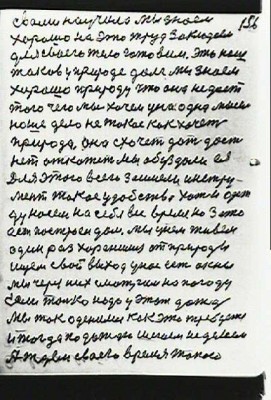 156
своли научила мы знаем
хорошо на это труд закладаем
для своего тело готовим. Это наш
таков у природе долг мы знаем
хорошо природу что она не даст
того чего мы хочем у нас одна мысля
наше дело не такое как хочет
природа, она схочет дат даст
нет откажет мы обуздали ея
для этого всего завимели инстру-
мент такое удобство хотя одеж
ду носем на себя все время но у это
ест построен дом. мы у нем живем
один раз хоронимся от природы
ищем свой выход у нас ест окны
мы через них смотрим на погоду
если только надо у этом дома
мы так оденимся как это требуется
и тогда по дождю шагаем не делаем
А ждем своего время такого